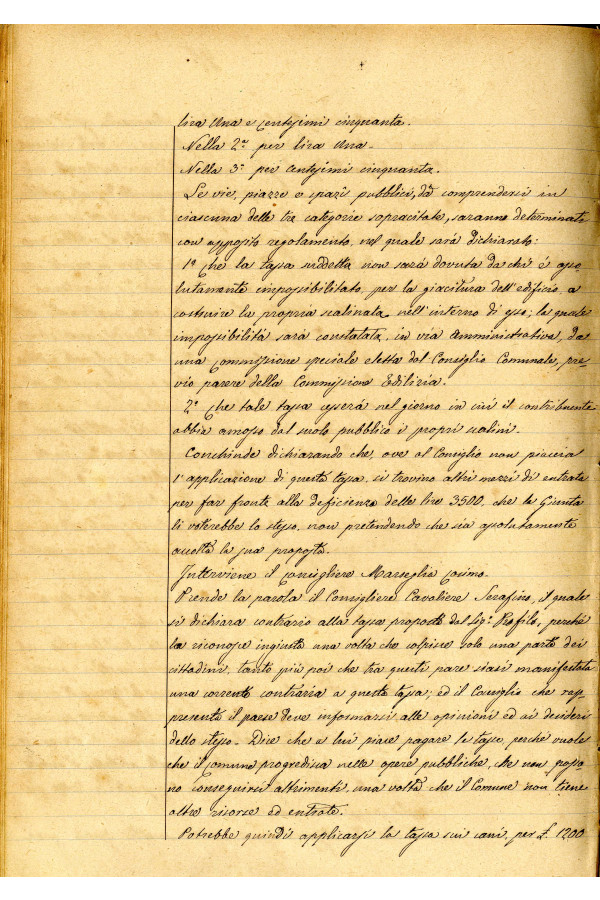 lira una e centesimi cinquanta.
Nella 2ª per lira una.
Nella 3ª per centesimi cinquanta.
Le vie, piazze e spazî pubblici, da comprendersi in
ciascuna delle tre categorie sopracitate, saranno determinate
con apposito regolamento, nel quale sarà dichiarato:
1º Che la tassa suddetta non sarà dovuta da chi è asso-
lutamente impossibilitato, per la giacitura dell'edificio, a
costruire la propria scalinata nell'interno di esso; la quale
impossibilità sarà constatata, in via amministrativa, da
una Commissione speciale eletta dal Consiglio Comunale, pre-
vio parere della Commissione Edilizia.
2º Che tale tassa cesserà nel giorno in cui il contribuente
abbia amosso dal suolo pubblico i proprî scalini.
Conchiude dichiarando che, ove al Consiglio non piaccia
l'applicazione di questa tassa, si trovino altri mezzi di entrata
per far fronte alla deficienza delle lire 3500, che la Giunta
li voterebbe lo stesso, non pretendendo che sia assolutamente
accolta la sua proposta.
Interviene il consigliere Marseglia Cosimo.
Prende la parola il Consigliere Cavaliere Serafino, il quale
si dichiara contrario alla tassa proposta dal Sigr. Profilo, perché
la riconosce ingiusta una volta che colpisce solo una parte dei
cittadini, tanto più poi che tra questi pare siasi manifestata
una corrente contraria a questa tassa; ed il Consiglio che rap-
presenta il paese deve informarsi alle opinioni ed ai desideri
dello stesso. Dice che a lui piace pagare le tasse, perché vuole
che il Comune progredisca nelle opere pubbliche, che non posso-
no conseguirsi altrimenti, una volta che il Comune non tiene
altre risorse ed entrate.
Potrebbe quindi applicarsi la tassa sui cani, per £. 1200